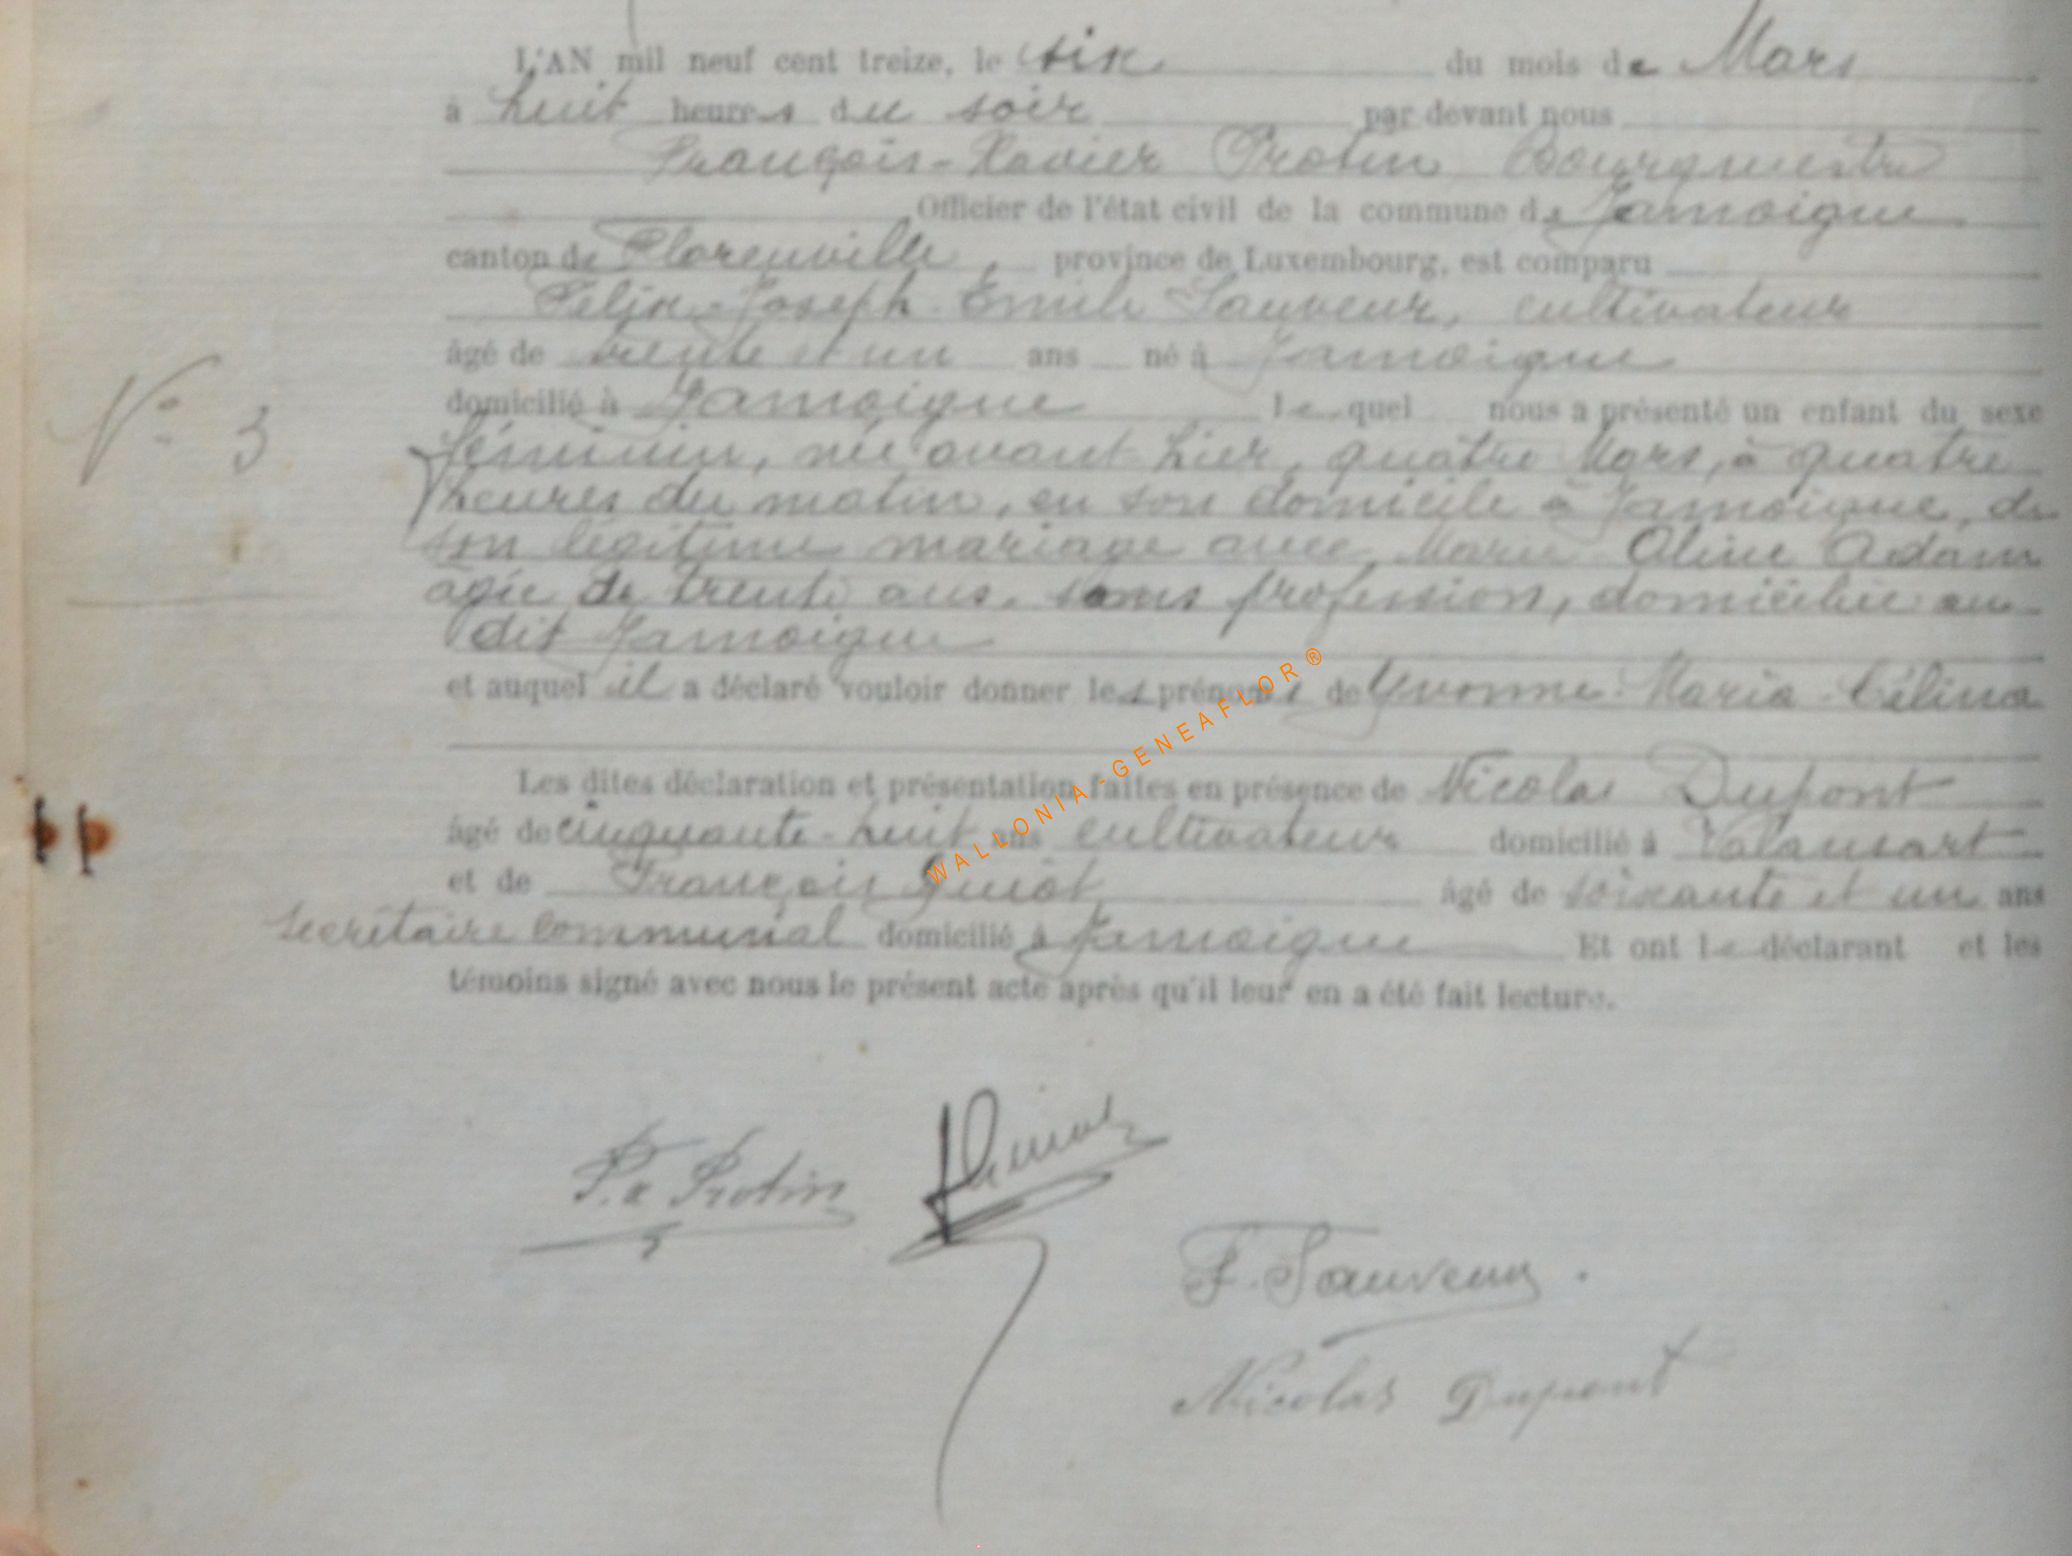 L'AN mil neuf cent treize, le six du mois de Mars
à huit heures du soir par devant nous
François-Xavier Protin Bourgmestre
Officier de l'état civil de la commune de Jamoigne
canton de Florenville, province de Luxembourg, est comparu
Félix-Joseph-Emile Sauveur, cultivateur
âgé de trente et un ans né à Jamoigne
domicilié à Jamoigne lequel nous a présenté un enfant du sexe
N° 3
féminin, née avant hier, quatre Mars, à quatre
heures du matin, en son domicile à Jamoigne, de
son légitime mariage avec Marie Oline Adam
âgée de trente ans, sans profession, domiciliée au
dit Jamoigne
et auquel il a déclaré vouloir donner les prénoms de Yvonne-Maria-Célina
Les dites déclaration et présentation faites en présence de Nicolas Dupont
âgé de cinquante-huit ans cultivateur domicilié à Valansart
et de François Guiot âgé de soixante et un ans
secrétaire communal domicilié à Jamoigne Et ont le déclarant et les
témoins signé avec nous le présent acte après qu'il leur en a été fait lecture.
WALLONIA-GENEAFLOR®
F. X Protin
F. Sauveur.
Nicolas Dupont